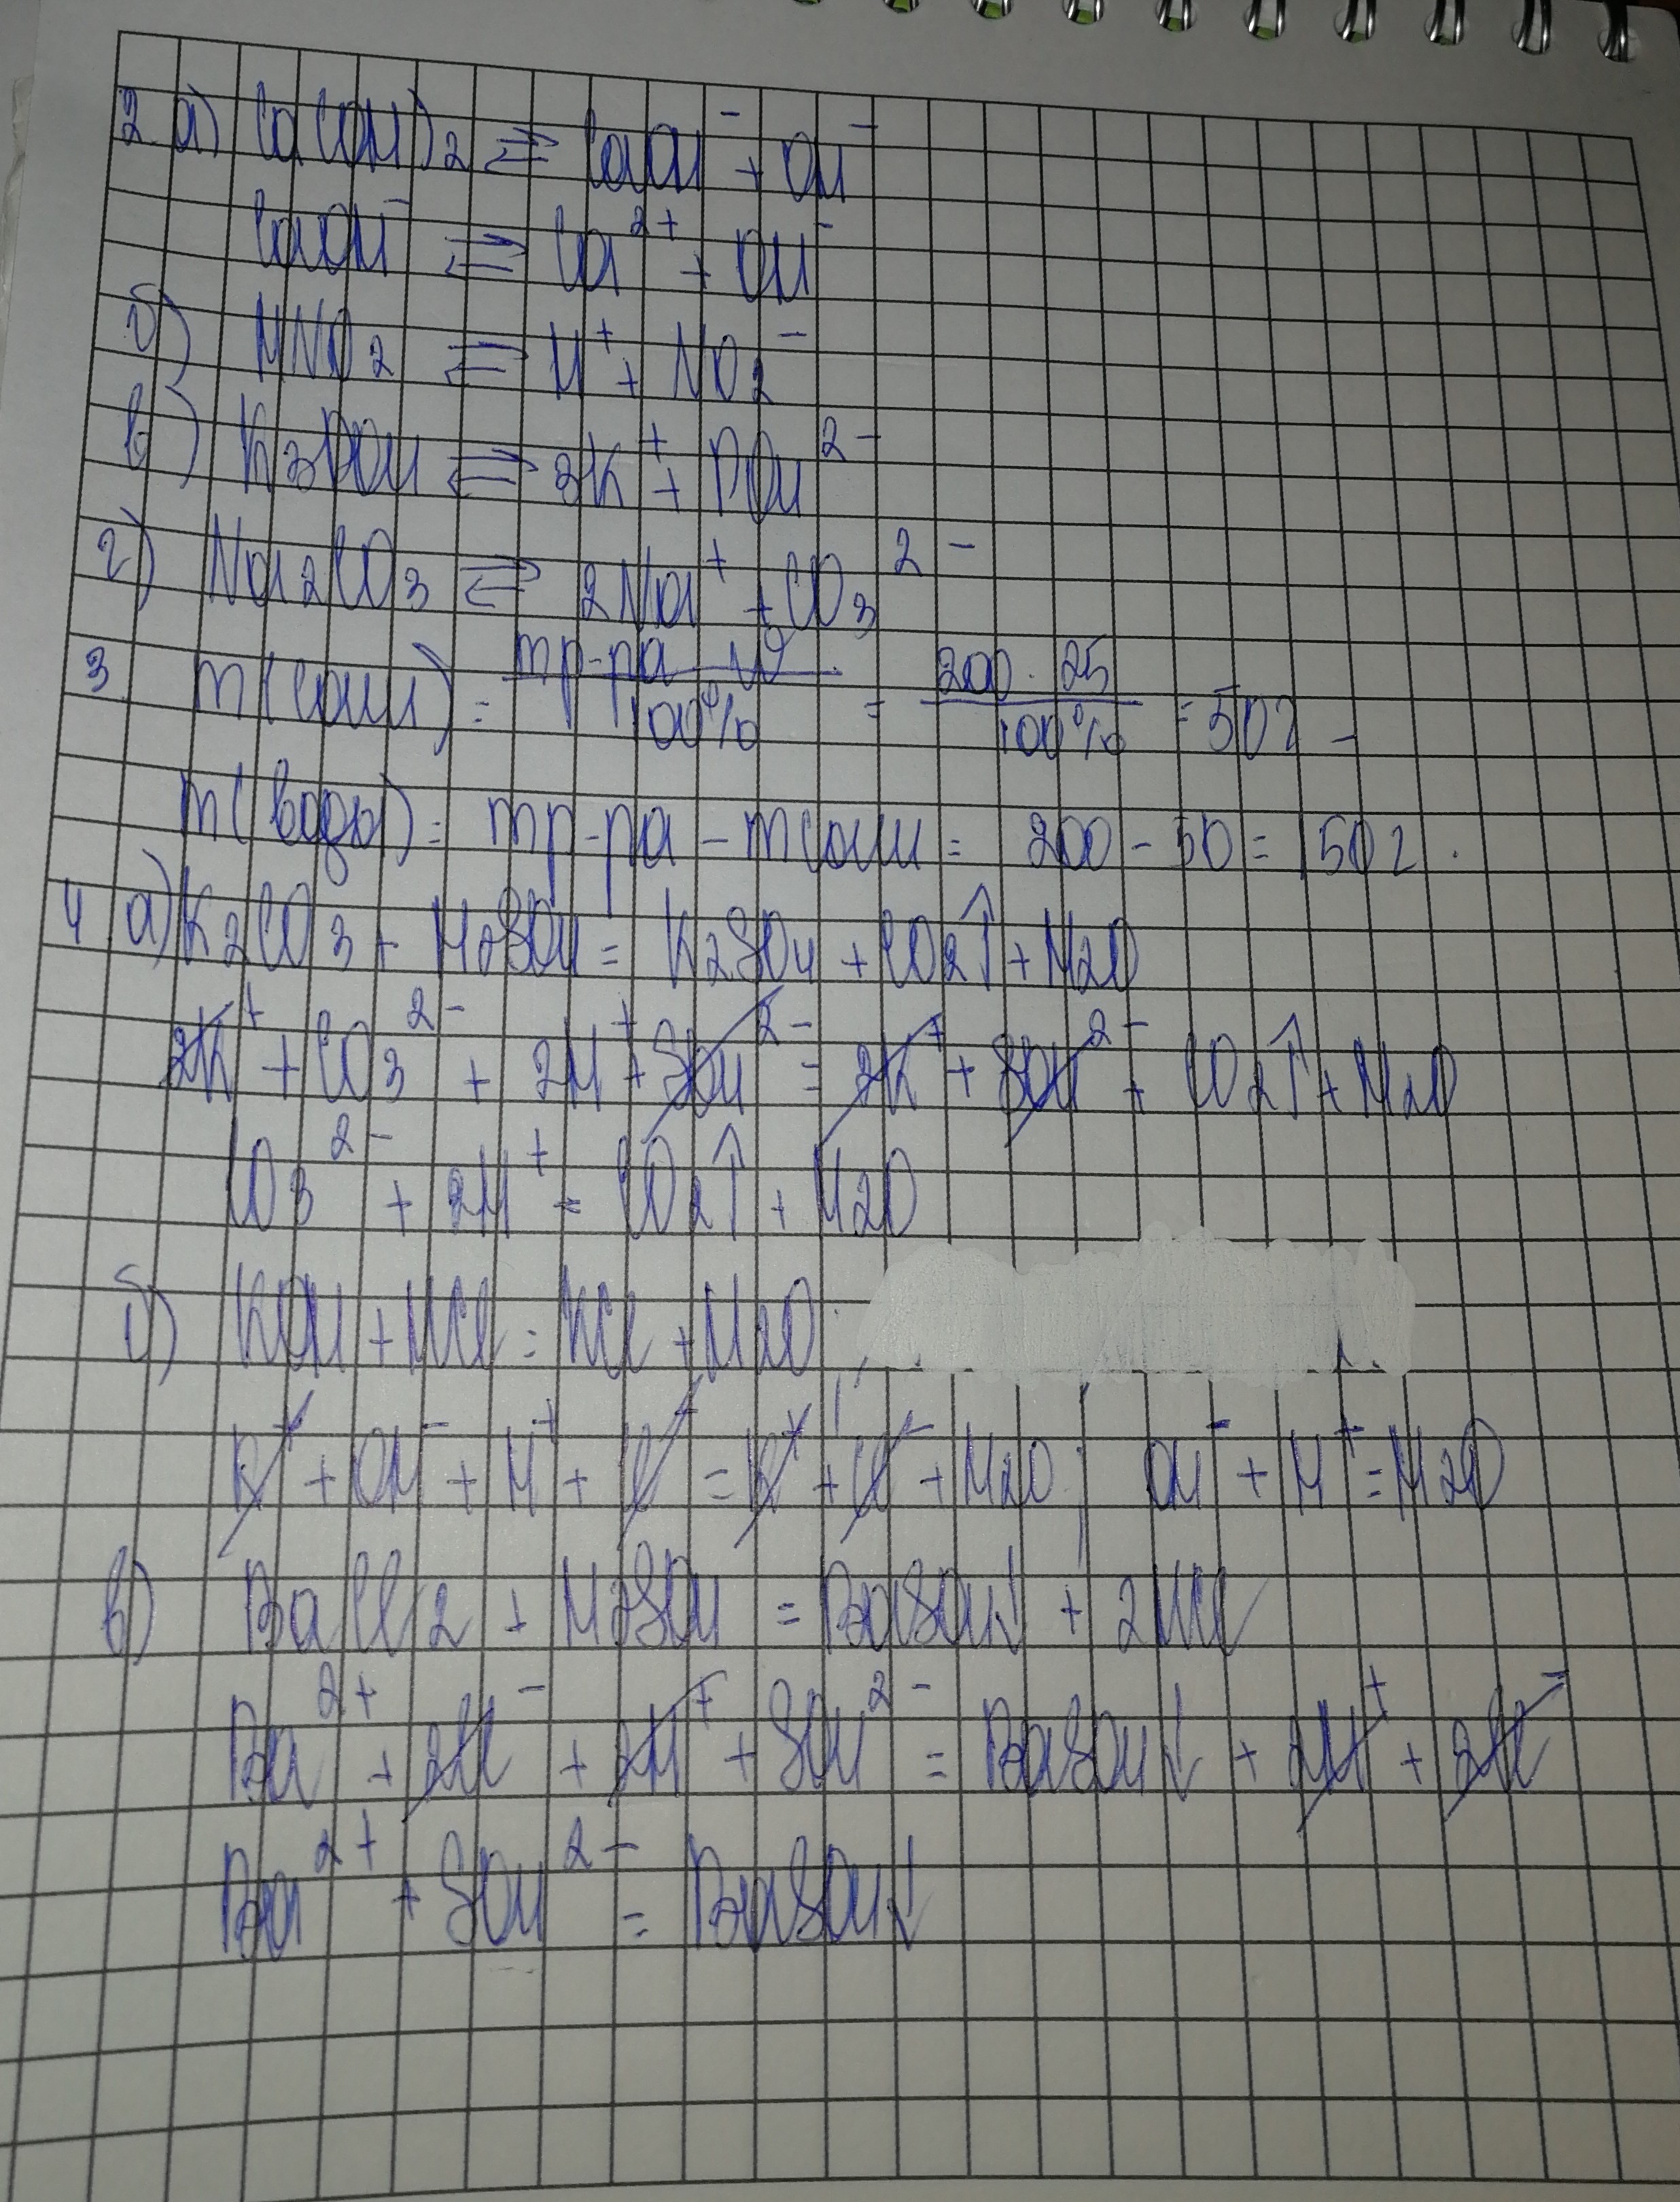 2 а) Ca(OH)₂ ⇄ CaOH⁻ + OH⁻
CaOH⁻ ⇄ Ca²⁺ + OH⁻
б) HNO₂ ⇄ H⁺ + NO₂⁻
в) K₃PO₄ ⇄ 3K⁺ + PO₄²⁻
г) Na₂CO₃ ⇄ 2Na⁺ + CO₃²⁻
3. m(соли) = mр-ра · W / 100% = 200 · 25 / 100% = 50г
m(воды) = mр-ра - mсоли = 200 - 50 = 150г.
4 а) K₂CO₃ + H₂SO₄ = K₂SO₄ + CO₂↑ + H₂O
2K⁺ + CO₃²⁻ + 2H⁺ + SO₄²⁻ = 2K⁺ + SO₄²⁻ + CO₂↑ + H₂O
CO₃²⁻ + 2H⁺ = CO₂↑ + H₂O
б) KOH + HCl = KCl + H₂O
K⁺ + OH⁻ + H⁺ + Cl⁻ = K⁺ + Cl⁻ + H₂O; OH⁻ + H⁺ = H₂O
в) BaCl₂ + H₂SO₄ = BaSO₄↓ + 2HCl
Ba²⁺ + 2Cl⁻ + 2H⁺ + SO₄²⁻ = BaSO₄↓ + 2H⁺ + 2Cl⁻
Ba²⁺ + SO₄²⁻ = BaSO₄↓